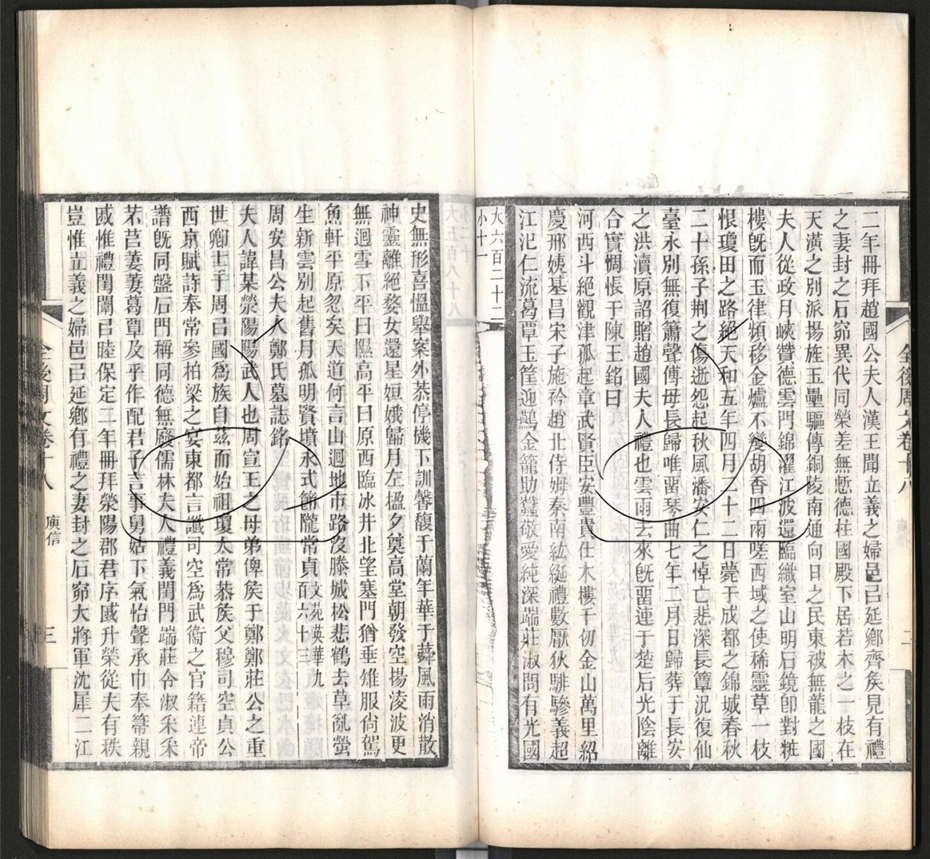 二年冊拜趙國公夫人漢王聞立義之婦邑已延鄉齊矦見有禮
之妻封之石窌異代同榮差無慙德柱國殿下居若木之一枝在
天潢之別派揚旌玉壘驅傳銅陵南通向日之民東被無龍之國
夫人從政月峽贊德雲門錦濯江波還臨織室山明石鏡卽對粧
樓旣而玉律頻移金爐不變胡香四兩嗟西域之使稀靈草一枝
恨瓊田之路絕天和五年四月二十二日薨于成都之錦城春秋
二十孫子荆之傷逝怨起秋風潘安仁之悼亡悲深長簟況復仙
臺永別無復簫聲傅母長歸唯畱琴曲七年二月日歸葬于長安
之洪瀆原詔贈趙國夫人禮也雲雨去來旣畱連于楚后光陰離
合實惆悵于陳王銘曰
河西斗絕觀津孤起章武賢臣安豐貴仕木樓千仞金山萬里紹
慶邢姨基昌宋子施衿趙北侍姆秦南紘綖禮數厭狄騑驂義超
江汜仁流葛覃玉筐迎鷊金籠助蠶敬愛純深端莊淑問有光國
大六百二十二
小十一
全後周文卷十八
二
史無形喜慍舉案外恭停機下訓馨馥千蘭年華于蕣風雨消散
神靈離絕婺女還星姮娥歸月左楹夕奠高堂朝發空揚淩波更
無迴雪下平曰隰高平曰原西臨冰井北望塞門猶垂雉服尙駕
魚軒平原忽矣天道何言山迴地市路沒滕城松悲鶴去草亂螢
生新雲別起舊月孤明賢墳永式節隴常貞文苑英華九百六十三
周安昌公夫人鄭氏墓誌銘
夫人諱某滎陽陽武人也周宣王之母弟俾矦于鄭鄭莊公之重
世卿士于周已國爲族自玆而始祖瓊太常恭矦父穆司空貞公
西京賦詩奉常參柏梁之宴東都言讖司空爲武衞之官籍連帝
譜旣同盤石門稱同德無廢儒林夫人禮義閨門端莊令淑采采
芣苢萋萋葛覃及乎作配君子言事舅姑下氣怡聲承巾奉帚親
戚惟禮閨闈已睦保定二年冊拜滎陽郡君序戚升榮從夫有秩
豈惟立義之婦邑已延鄉有禮之妻封之石窌大將軍沈犀二江
全後周文卷十八
庾信
三